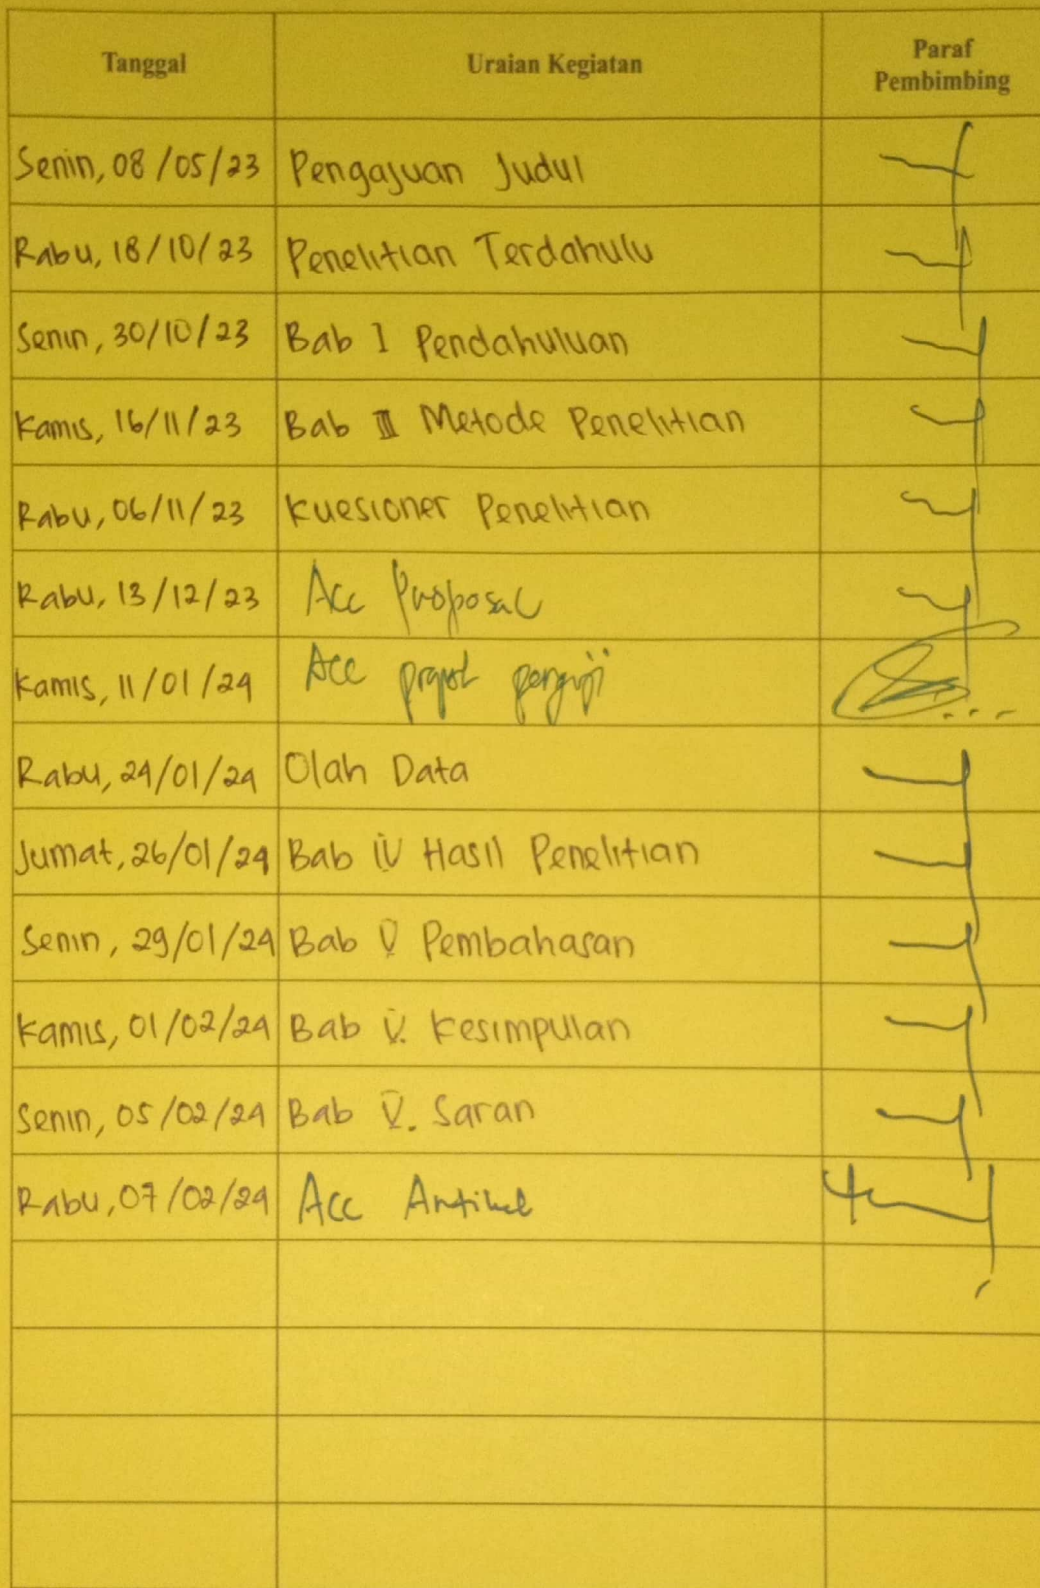 Tanggal Uraian Kegiatan Paraf Pembimbing
Senin, 08/05/23 Pengajuan Judul
Rabu, 18/10/23 Penelitian Terdahulu
Senin, 30/10/23 Bab I Pendahuluan
Kamis, 16/11/23 Bab III Metode Penelitian
Rabu, 06/11/23 Kuesioner Penelitian
Rabu, 13/12/23 Acc Proposal
Kamis, 11/01/24 Acc penguji
Rabu, 24/01/24 Olah Data
Jumat, 26/01/24 Bab IV Hasil Penelitian
Senin, 29/01/24 Bab V Pembahasan
Kamis, 01/02/24 Bab V. Kesimpulan
Senin, 05/02/24 Bab V. Saran
Rabu, 07/02/24 Acc Artikel